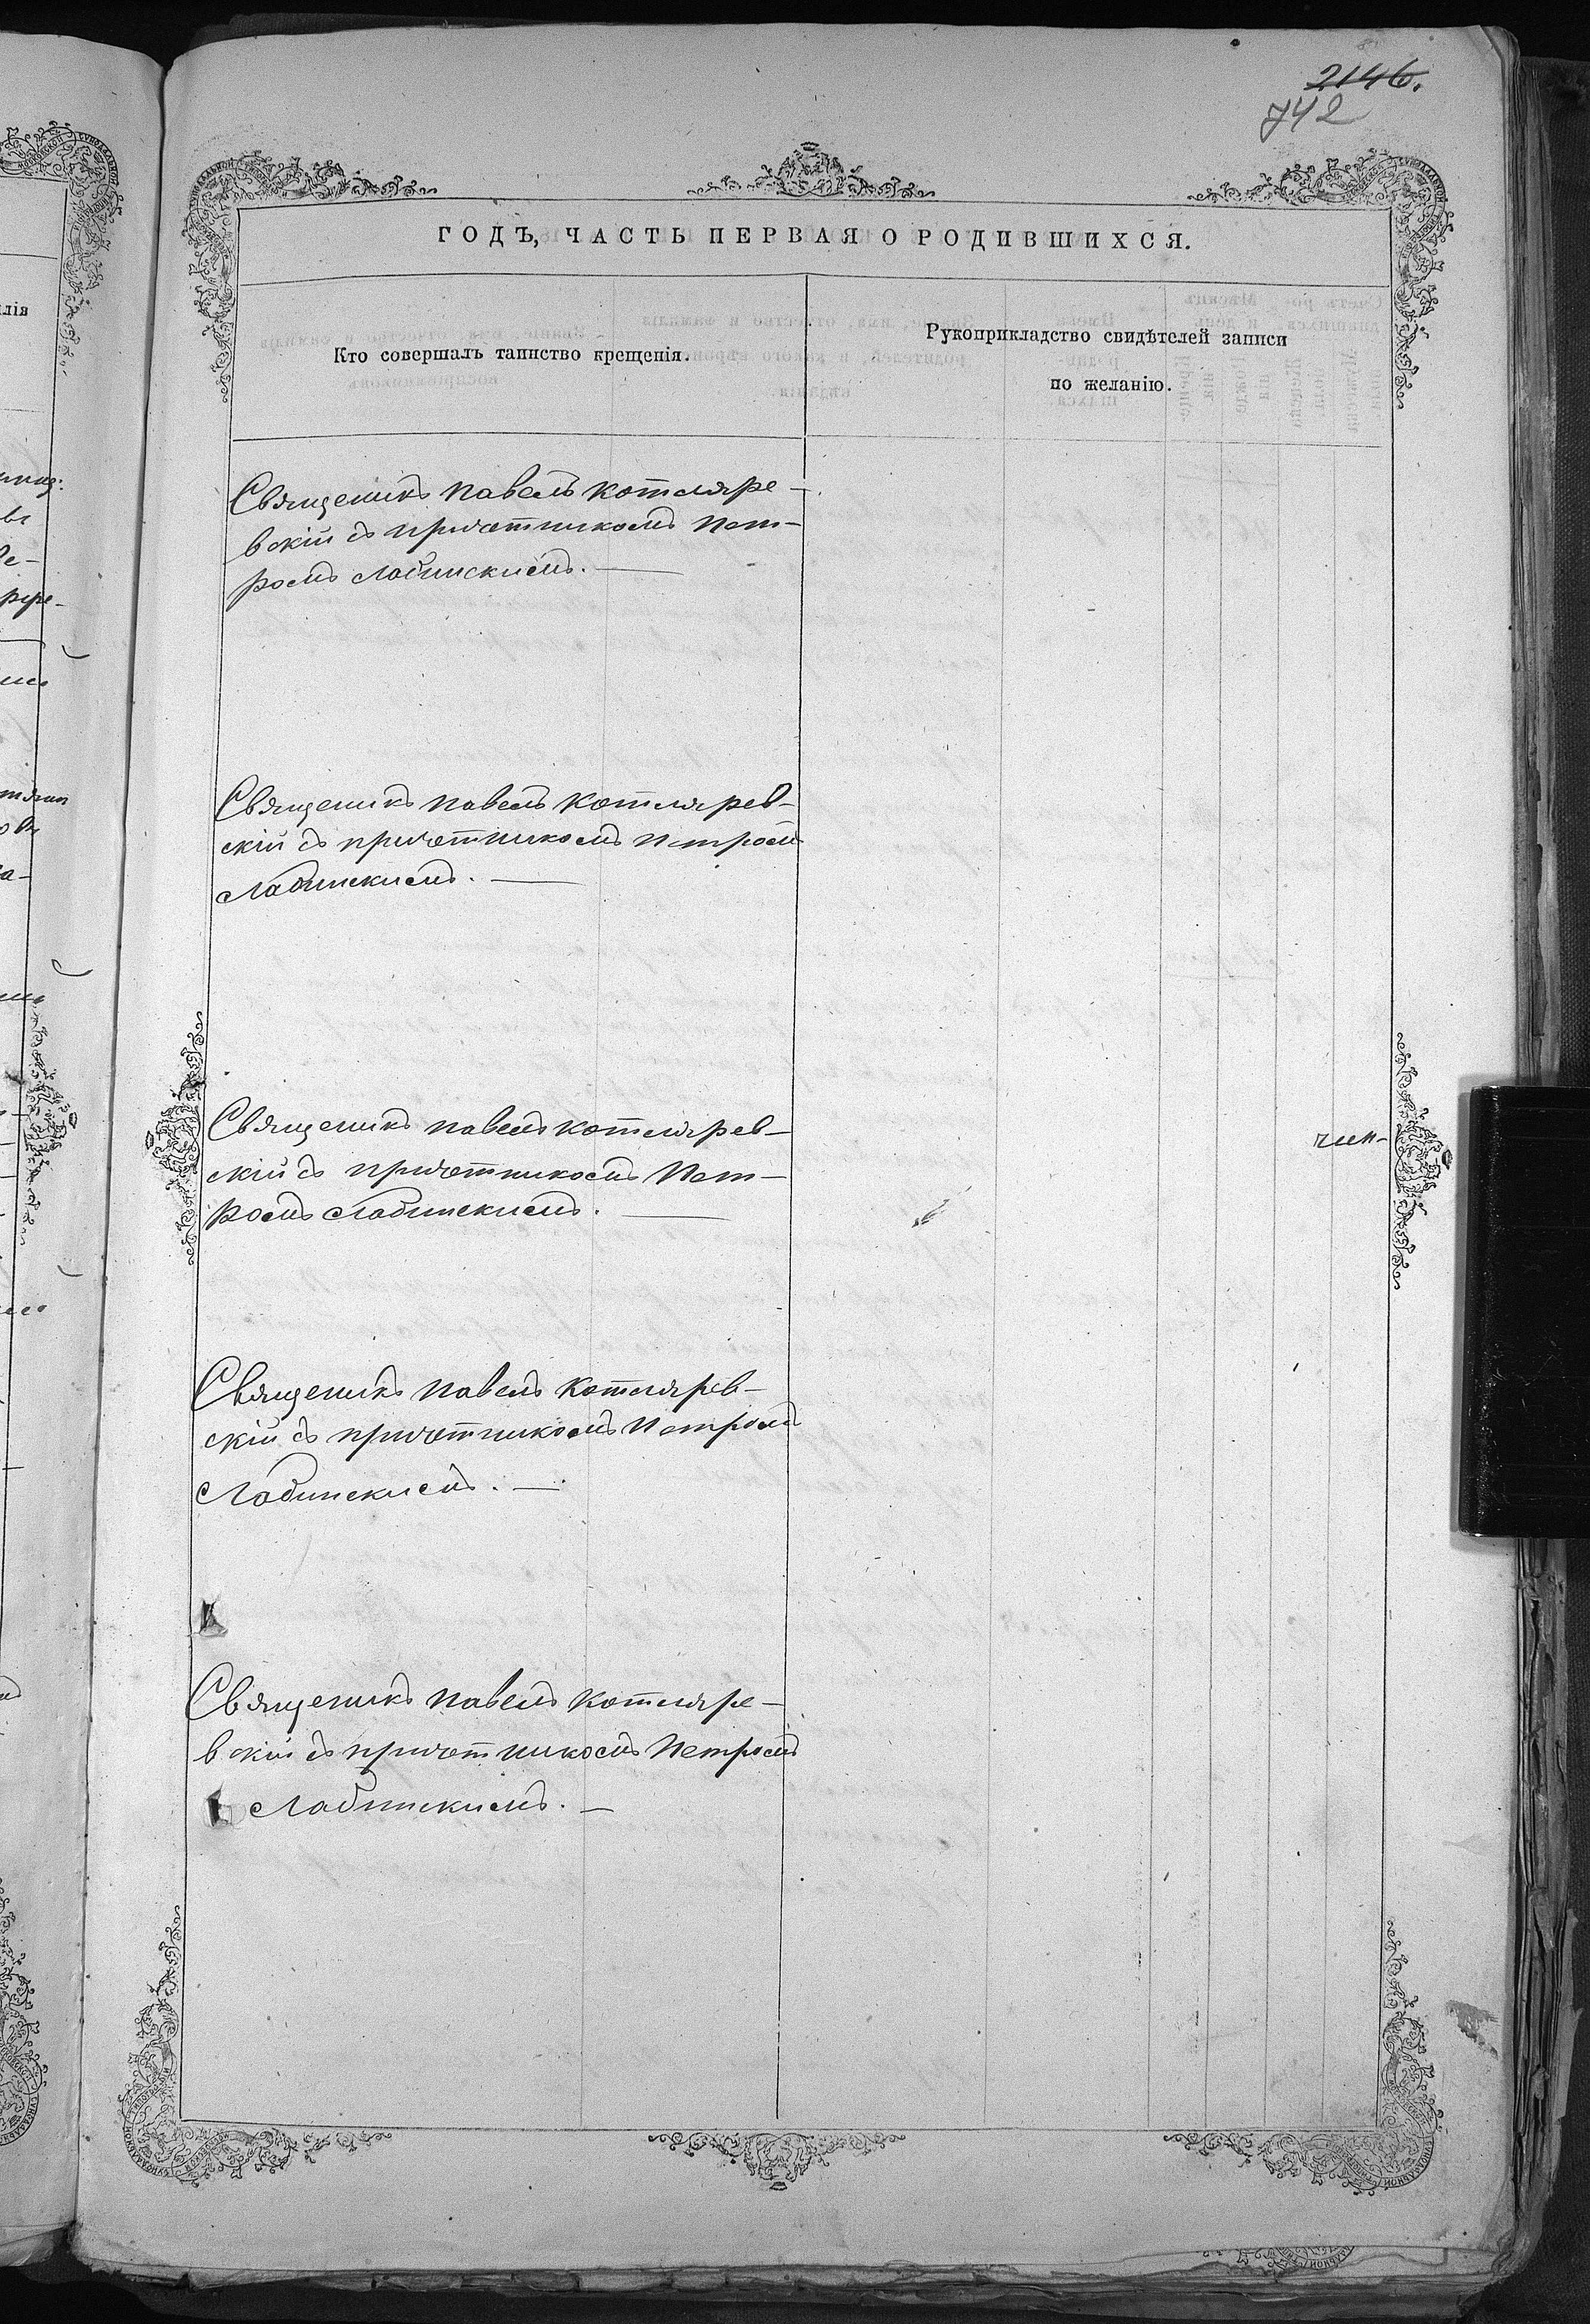 2146.
742
ГОДЪ, ЧАСТЬ ПЕРВАЯ О РОДИВШИХСЯ.
Кто совершалъ таинство крещенія.
Рукоприкладство свидѣтелей записи
по желанію.
Священикъ Павелъ Котляре-
вскій съ причотникомъ Пет-
ромъ Лабинскимъ.
Священикъ Павелъ Котлярев-
скій съ причотникомъ Петромъ
Лабинскимъ.
Священикъ Павелъ Котлярев-
скій съ причотникомъ Пет-
ромъ Лабинскимъ.
Священикъ Павелъ Котлярев-
скій съ причотникомъ Петромъ
Лабинскимъ.
Священикъ Павелъ Котляре-
вскій съ причотникомъ Петромъ
Лабинскимъ.